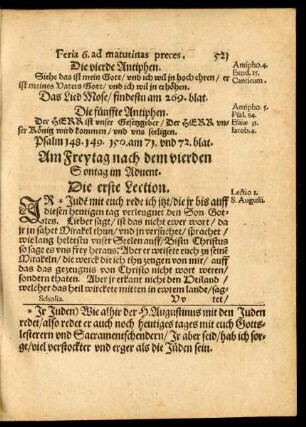 Feria 6. ad maturinas preces. 523
Die vierde Antiphen.
Antipho. 4.
Exod. 15.
Canticum.
Siehe das ist mein Gott/ und ich wil jn hoch ehren/ er
ist meines Vaters Gott/ und ich wil jn erhöhen.
Das Lied Mose/ findestu am 269. blat.
Die fünffte Antiphen.
Antipho. 5.
Psal. 84.
Esaiæ 33.
Iacob. 4.
Der HERR ist unser Gesetzgeber/ Der HERR un-
ser König wird kommen/ und uns seeligen.
Psalm 148. 149. 150. am 71. und 72. blat.
Am Freytag nach dem vierden
Sontag im Advent.
Die erste Lection.
Lectio 1.
S. Augusti.
IR * Jüdē mit euch rede ich jtzt/ die jr bis auff
diesen heutigen tag verleugnet den Son Got-
tes. Lieber sagt/ ist das nicht ewer wort/ da
jr jn sahet Mirakel thun/ und jn versuchet/ sprachet/
wie lang heltestu unser Seelen auff/ Bistu Christus
so sage es vns frey heraus? Aber er weisete euch zu seinē
Mirakeln/ die werck die ich thu zeugen von mir/ auff
das das gezeugnis von Christo nicht wort weren/
sondern thaten. Aber jr erkant nicht den Heiland/
welcher das heil wirckete mitten in ewrem lande/ sag-
Scholia. Vv tet/
* Jr Juden) Wie alhir der H. Augustinus mit den Juden
redet/ also redet er auch noch heutiges tages mit euch Gotts-
lesterern und Sacramentschendern/ Jr aber seid/ hab ich sor-
ge/ viel verstockter und erger als die Jüden sein.